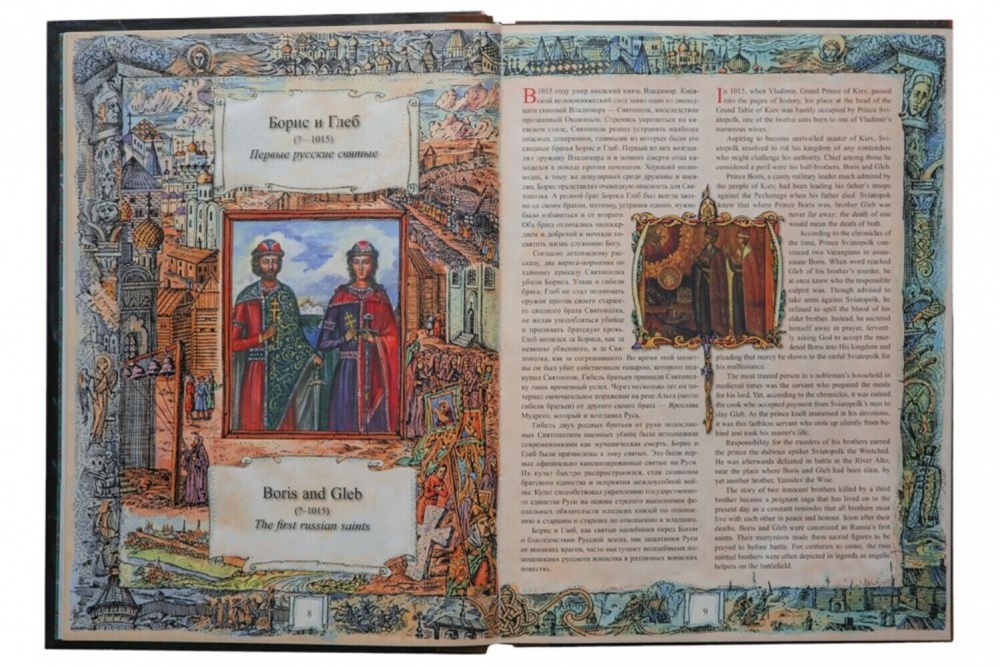 Борис и Глеб
(?—1015)
Первые русские святые
Boris and Gleb
(?–1015)
The first russian saints
8
В 1015 году умер киевский князь Владимир. Киев-
ский великокняжеский стол занял один из двенад-
цати сыновей Владимира — Святополк, впоследствии
прозванный Окаянным. Стремясь укрепиться на ки-
евском столе, Святополк решил устранить наиболее
опасных соперников, главными из которых были его
сводные братья Борис и Глеб. Первый из них возглав-
лял дружину Владимира и в момент смерти отца на-
ходился в походе против печенегов. Хороший полко-
водец, к тому же популярный среди дружины и киев-
лян, Борис представлял очевидную опасность для Свя-
тополка. А родной брат Бориса Глеб был всегда заод-
но со своим братом, поэтому, устранив одного, нужно
было избавиться и от второго.
Оба брата отличались милосер-
дием и добротой и мечтали по-
святить жизнь служению Богу.
Согласно летописному расс-
казу, два варяга-норманна по
тайному приказу Святополка
убили Бориса. Узнав о гибели
брата, Глеб не стал поднимать
оружия против своего старше-
го сводного брата Святополка,
не желая уподобляться убийце
и проливать братскую кровь.
Глеб молился за Бориса, как за
невинно убиенного, и за Свя-
тополка, как за согрешившего. Во время этой молит-
вы он был убит собственным поваром, которого под-
купил Святополк. Гибель братьев принесла Святопол-
ку лишь временный успех. Через несколько лет он по-
терпел окончательное поражение на реке Альта (место
гибели братьев) от другого своего брата — Ярослава
Мудрого, который и возглавил Русь.
Гибель двух родных братьев от руки подослан-
ных Святополком наемных убийц была истолкована
современниками как мученическая смерть. Борис и
Глеб были причислены к лику святых. Это были пер-
вые официально канонизированные святые на Руси.
Их культ быстро распространился, став символом
братского единства и неприятия междоусобной вой-
ны. Культ способствовал укреплению государственно-
го единства Руси на основе строгого выполнения фе-
одальных обязательств младших князей по отноше-
нию к старшим и старших по отношению к младшим.
Борис и Глеб, как святые молебники перед Богом
о благоденствии Русской земли, как защитники Руси
от внешних врагов, часто выступают волшебными по-
мощниками русского воинства в различных воинских
повестях.
In 1015, when Vladimir, Grand Prince of Kiev, passed
into the pages of history, his place at the head of the
Grand Table of Kiev was hastily occupied by Prince Svi-
atopolk, one of the twelve sons born to one of Vladimir's
numerous wives.
Aspiring to become unrivalled master of Kiev, Svi-
atopolk resolved to rid his kingdom of any contenders
who might challenge his authority. Chief among those he
considered a peril were his half-brothers, Boris and Gleb.
Prince Boris, a canny military leader much admired
by the people of Kiev, had been leading his father's troops
against the Pechenegs when his father died. Sviatopolk
knew that where Prince Boris was, brother Gleb was
never far away; the death of one
would mean the death of both.
According to the chronicles of
the time, Prince Sviatopolk con-
vinced two Varangians to assas-
sinate Boris. When word reached
Gleb of his brother's murder, he
at once knew who the responsible
culprit was. Though advised to
take arms against Sviatopolk, he
refused to spill the blood of his
elder brother. Instead, he secreted
himself away in prayer, fervent-
ly asking God to accept the mur-
dered Boris into His kingdom and
pleading that mercy be shown to the sinful Sviatopolk for
his malfeasance.
The most trusted person in a nobleman's household in
medieval times was the servant who prepared the meals
for his lord. Yet, according to the chronicles, it was indeed
the cook who accepted payment from Sviatopolk's men to
slay Gleb. As the prince knelt immersed in his devotions,
it was this faithless servant who stole up silently from be-
hind and took his master's life.
Responsibility for the murders of his brothers earned
the prince the dubious epithet Sviatopolk the Wretched.
He was afterwards defeated in battle at the River Alto,
near the place where Boris and Gleb had been slain, by
yet another brother, Yaroslav the Wise.
The story of two innocent brothers killed by a third
brother became a poignant saga that has lived on to the
present day as a constant reminder that all brothers must
live with each other in peace and honour. Soon after their
deaths, Boris and Gleb were canonized as Russia's first
saints. Their martyrdom made them sacred figures to be
prayed to before battle. For centuries to come, the two
sainted brothers were often depicted in legends as angelic
helpers on the battlefield.
9